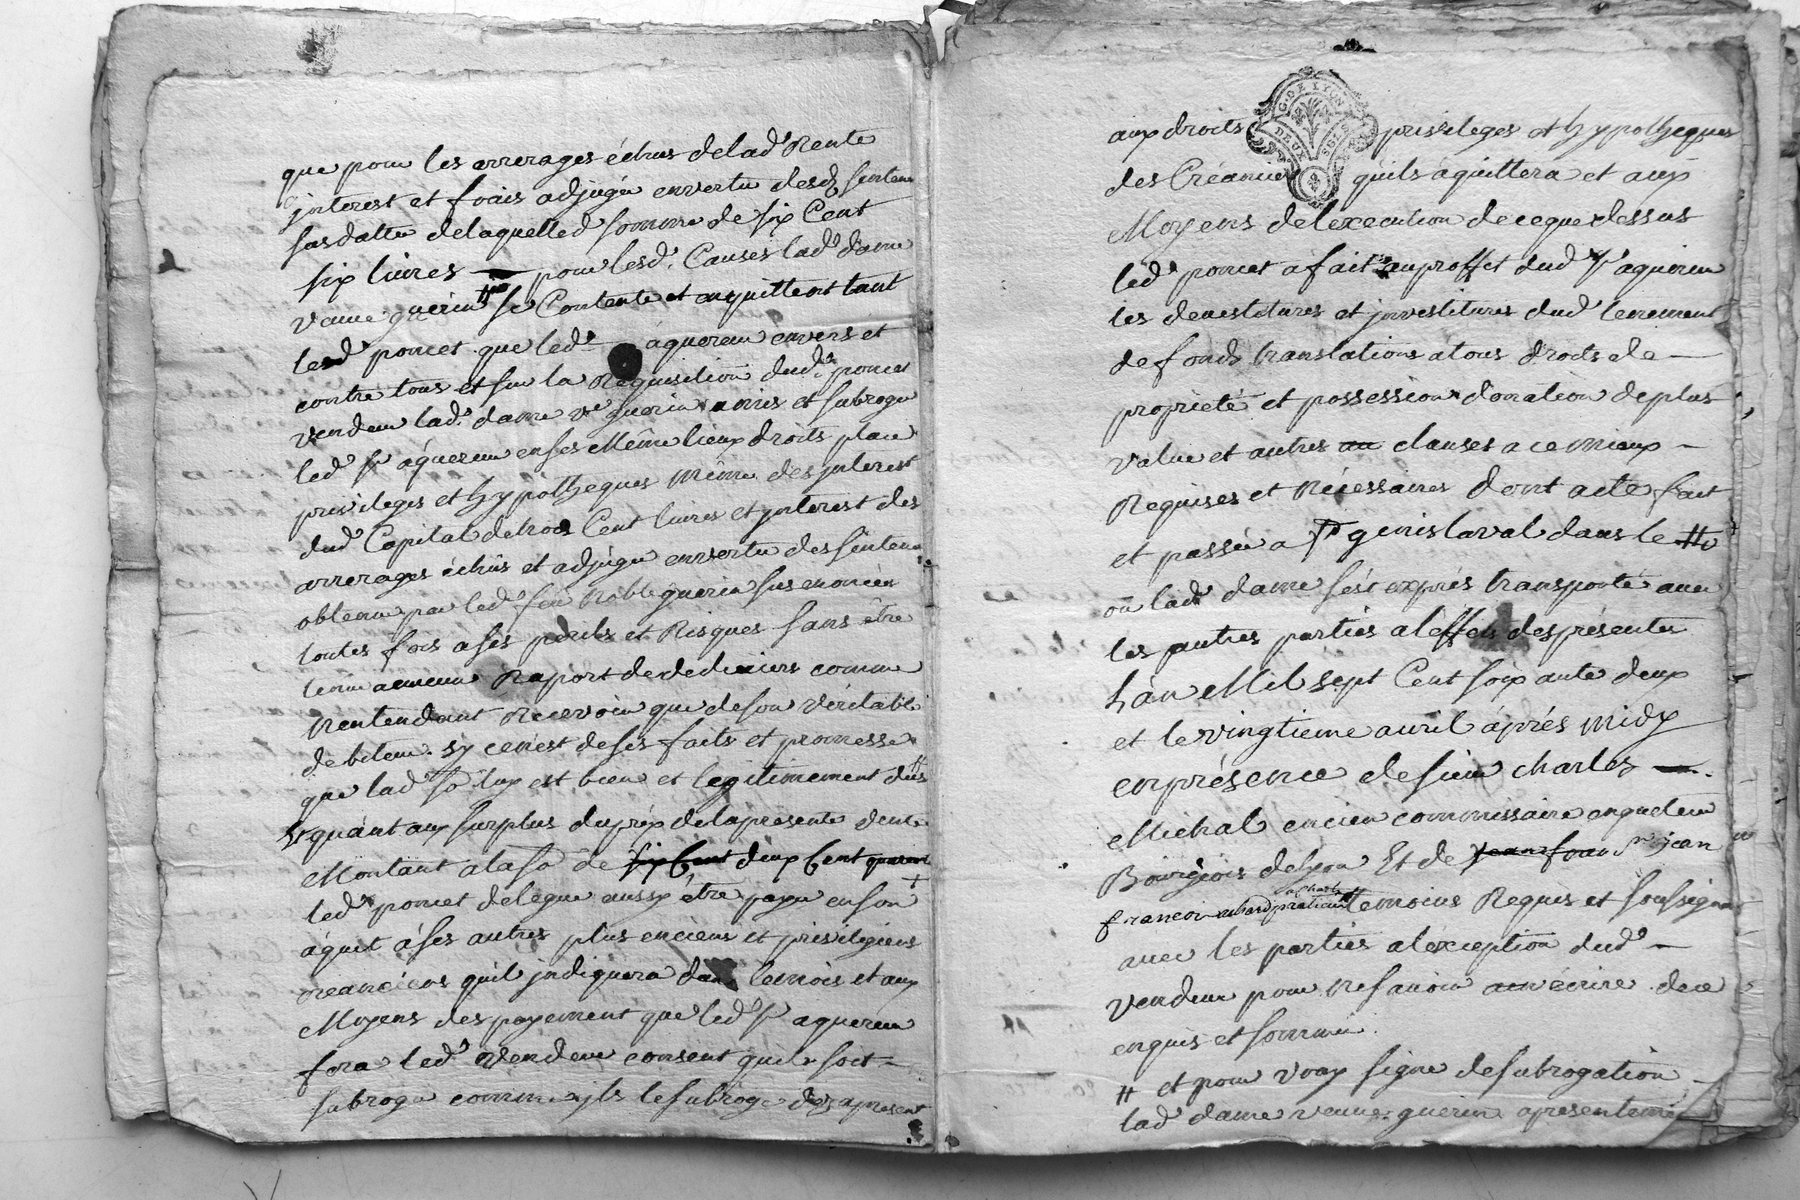 que pour les arrerages échus delad.e Rente
jnterest et frais adjugés envertu desd. senten
susdattée delaquelled. somme de six Cent
six livres pour lesd. Causes lad.e dame
veuve guerin se Contente et enquittent tant
led. poncet que led. áquereur envers et
contre tous et sur la Réquisition dud. poncet
vendeur lad. dame v.e guerin a mis et subrogé
led. s.r áquereur enses Même lieux droits place
privileges et hypotheques même des jnterest
dud. Capital detrois Cent livres et jnterest des
arrerages échûs et adjugés envertu des senten
obtenue par led. feu Noble guerin sus enoncées
toutes fois ases perils et Risques sans être
tenue aucun Raport dededeniers comme
Nentendant Recevoir que deson véritable
debiteur. sy cenest deses faits et promesse
que lad. so. luy est bien et legitimement düe
et quánt aux surplus duprix delapresente vente
Montant alaso. de six Cent deux Cent quarent
led. poncet delegue aussy être payée enson
áquit áses autres plus enciens et privilegiers
creanciers quil jndiquera dans lemois et aux
Moyens despayement que led. s.r aquereur
fera led. vendeur consent quil soit
subrogé comme jls lesubroge des apresent
G. DE LYON
DEUX SOLS
aux droits privileges et hypotheques
des Créanciers quils áquittera et aux
Moyens delexecution deceque dessus
led. poncet afait auproffet dud. s.r aquereur
les devestitures et jnvestitures dud. tenement
defonds translations atous droits de
proprieté et possession donation deplus
value et autres au clauses a ce mieux
Requises et Nécessaires dont acte fait
et passée a s.t genis laval dans le
où lad. dame sest exprés transportée avec
les autres parties aleffets desprésentes
Lan Mil sept Cent soixante deux
et levingtieme avril áprés midy
enprésence desieur charles
Michal encien commissaire enqueteur
Bourgeois delyon Et de Jean fran s.r jean
francois praticien temoins Requis et soussignés
avec les parties aléxception dud.
vendeur pour ne savoir écrire dece
enquis et sommé.
# et pour vray signe desubrogation
lad. dame veuve guerin apresentement